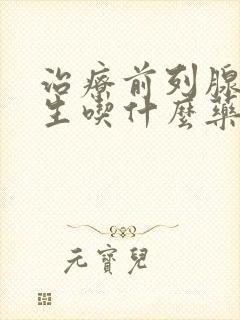 治療前列腺
生喫什麼藥
元寶兒